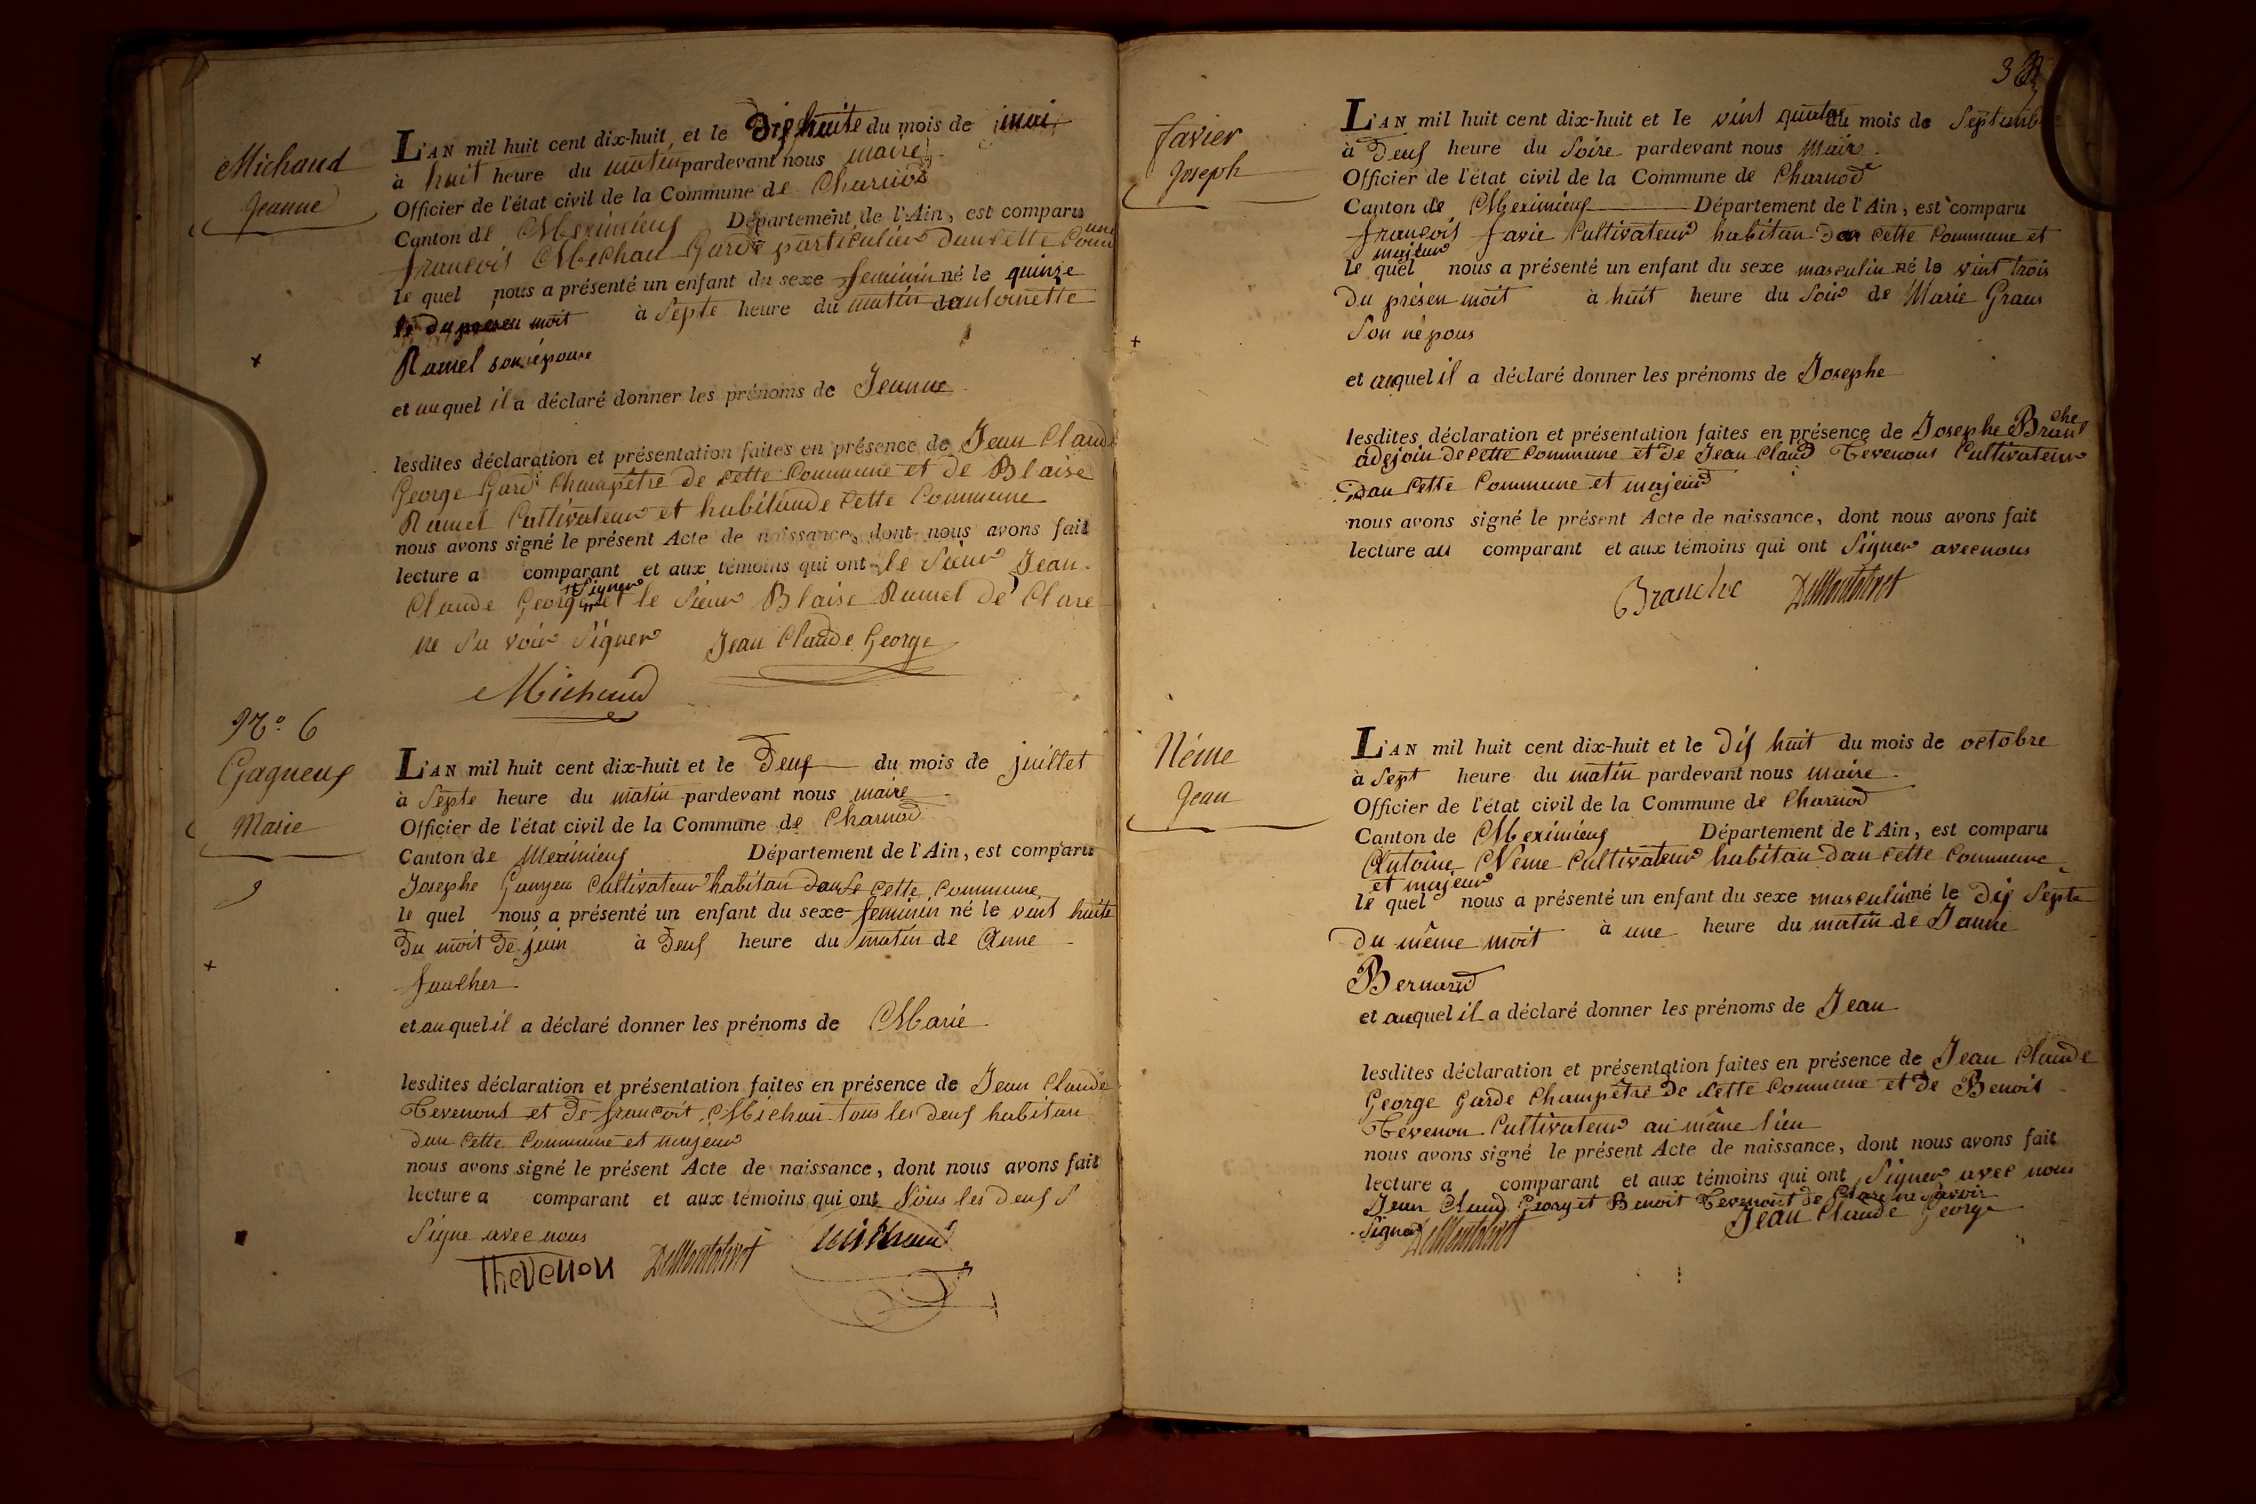 Michaud
Jeanne
L'AN mil huit cent dix-huit, et le Dixhuite du mois de mai
à huit heure du matin pardevant nous maire
Officier de l'état civil de la Commune de Charnod
Canton de Meximieux Département de l'Ain, est comparu
francois Michau Garde particulier dan cette commune
le quel nous a présenté un enfant du sexe feminin né le quinze
du presen moit à Septe heure du matin dantoinette
Ramel son népouse
et auquel il a déclaré donner les prénoms de Jeanne
lesdites déclaration et présentation faites en présence de Jean Claude
George Garde Champêtre de cette Commune et de Blaise
Ramel Cultivateur et habitan de cette Commune
nous avons signé le présent Acte de naissance, dont nous avons fait
lecture a comparant et aux témoins qui ont le Sieur Jean
Claude George Signer et le Sieur Blaise Ramel de Clare
ne Sa voir Signer Jean Claude George
Michaud
N.° 6
Gagneux
Marie
L'AN mil huit cent dix-huit et le Deux du mois de juillet
à Septe heure du matin pardevant nous maire
Officier de l'état civil de la Commune de Charnod
Canton de Meximieux Département de l'Ain, est comparu
Josephe Ganyeu Cultivateur habitan dan cette Commune
le quel nous a présenté un enfant du sexe feminin né le vint huite
du moit de juin à Deux heure du matin de Anne
faucher
et au quel il a déclaré donner les prénoms de Marie
lesdites déclaration et présentation faites en présence de Jean Claude
Tevenont et de francoit Michau tous les deux habitan
dan cette Commune et majeur
nous avons signé le présent Acte de naissance, dont nous avons fait
lecture a comparant et aux témoins qui ont tous les deux S
Signe avec nous
Thevenon DeMontolivet Michaud
Favier
Joseph
L'AN mil huit cent dix-huit et le vint quatre du mois de Septembre
à Deux heure du Soire pardevant nous Maire
Officier de l'état civil de la Commune de Charnod
Canton de Meximieux Département de l'Ain, est comparu
francois favie Cultivateur habitan dan cette Commune et
majeur
le quel nous a présenté un enfant du sexe masculin né le vint trois
du présen moit à huit heure du Soir de Marie Graus
Son népous
et auquel il a déclaré donner les prénoms de Josephe
lesdites déclaration et présentation faites en présence de Josephe Branche
adejoin de cette Commune et de Jean Claud Tevenont Cultivateur
dan cette Commune et majeur
nous avons signé le présent Acte de naissance, dont nous avons fait
lecture au comparant et aux témoins qui ont Signer avec nous
Branche DeMontolivet
Néme
Jean
L'AN mil huit cent dix-huit et le Dix huit du mois de octobre
à Sept heure du matin pardevant nous maire
Officier de l'état civil de la Commune de Charnod
Canton de Meximieux Département de l'Ain, est comparu
Antoine Néme Cultivateur habitan dan cette Commune
et majeur
le quel nous a présenté un enfant du sexe masculin né le Dix Septe
du même moit à une heure du matin de Janne
Bernard
et auquel il a déclaré donner les prénoms de Jean
lesdites déclaration et présentation faites en présence de Jean Claude
George Garde Champêtre de cette Commune et de Benoit
Tevenon Cultivateur au même lieu
nous avons signé le présent Acte de naissance, dont nous avons fait
lecture a comparant et aux témoins qui ont Signer avec nous
Jean Claud Georg et Benoit Tevenont de Clare ne Savoir
Signer DeMontolivet Jean Claude George